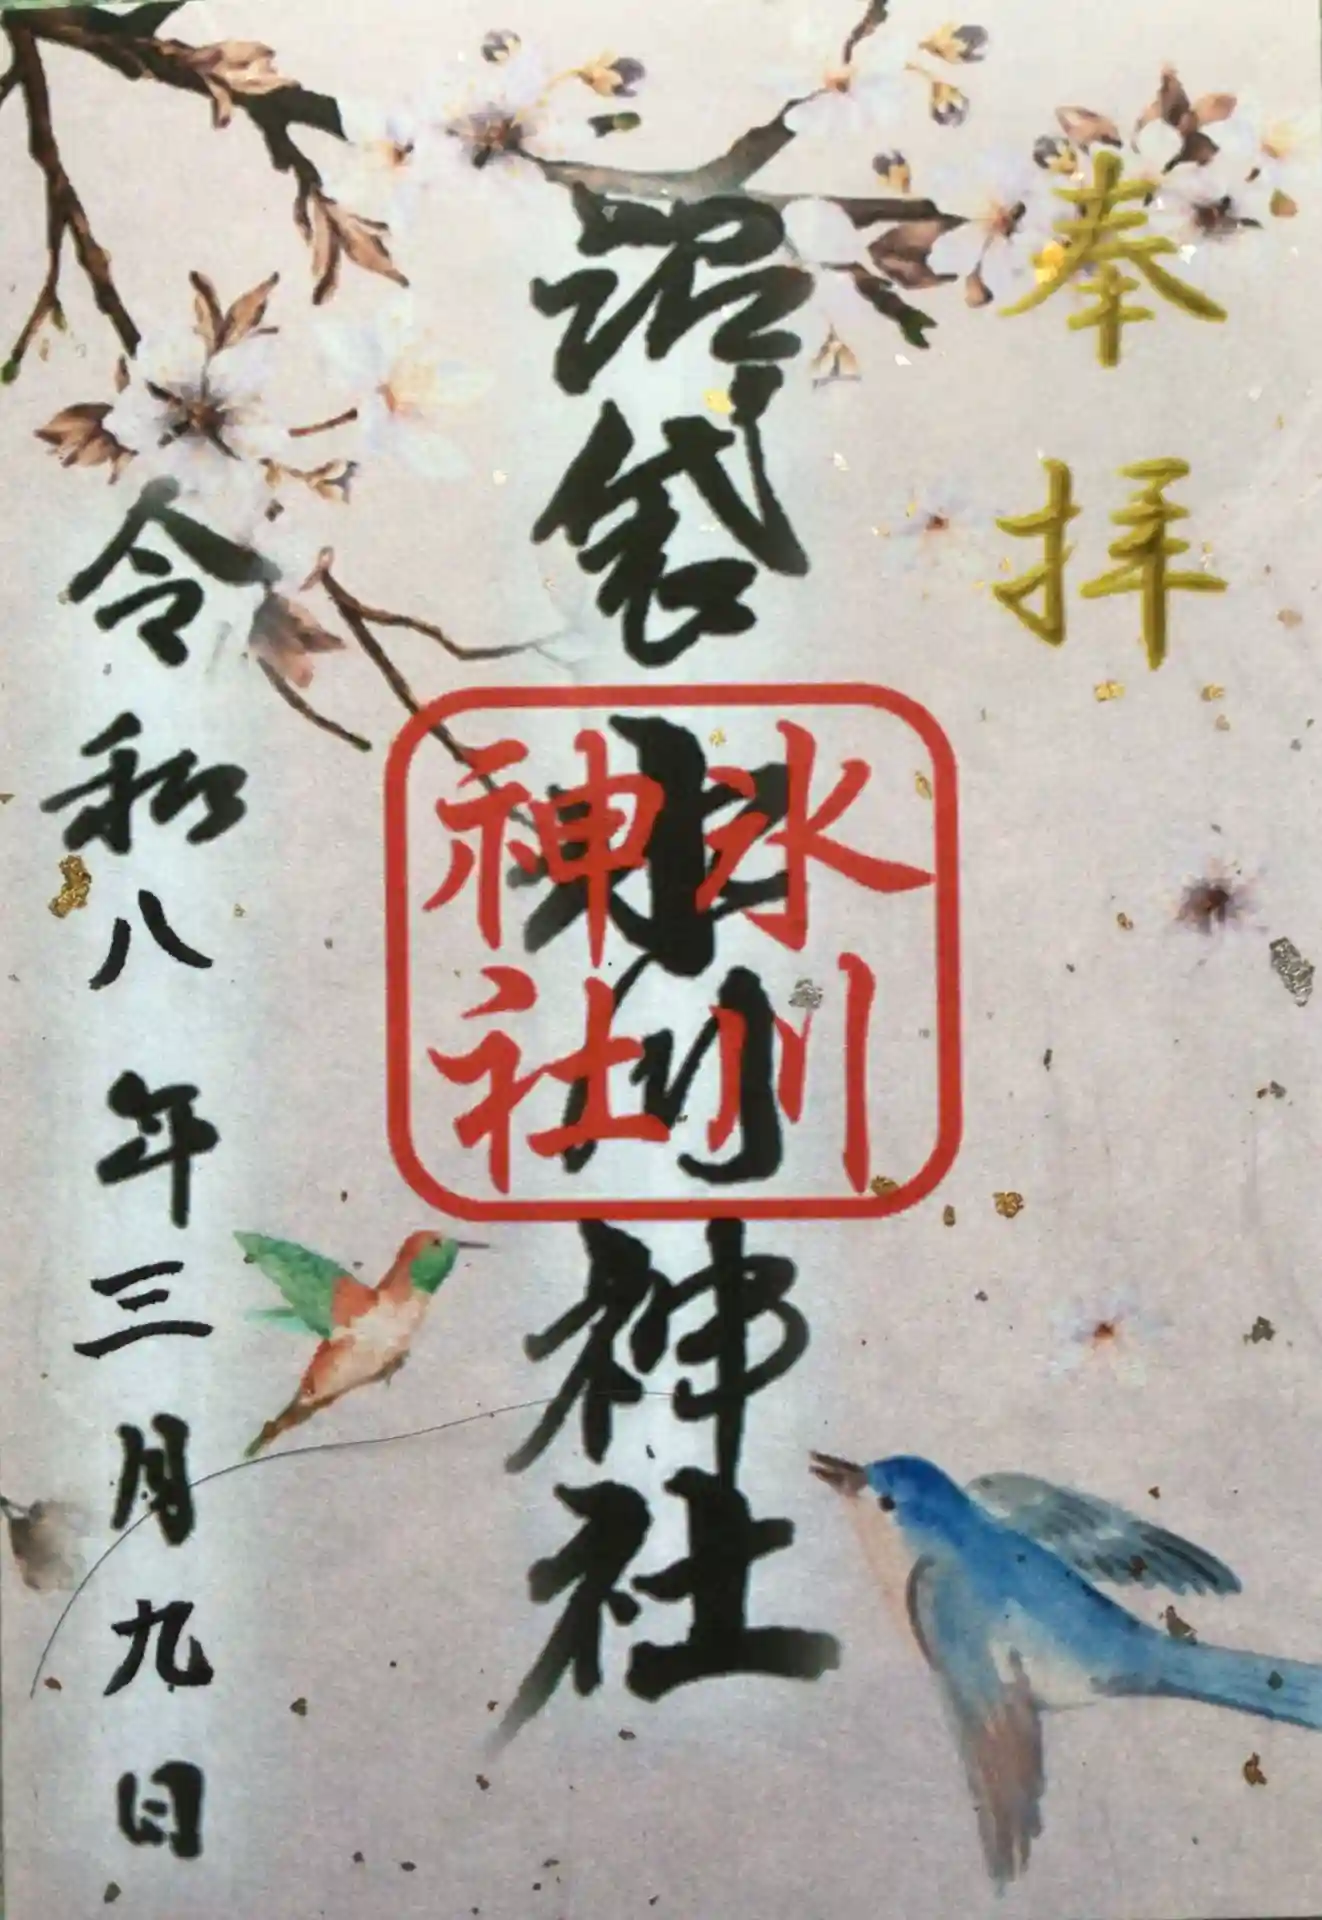 奉拝
沼袋氷川神社
氷川
神社
令和八年三月九日